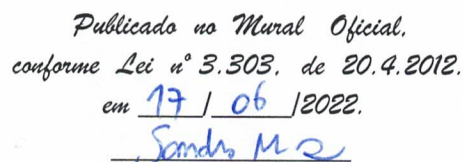 Publicado no Mural Oficial,
conforme Lei nº 3.303, de 20.4.2012.
em 17 / 06 /2022.